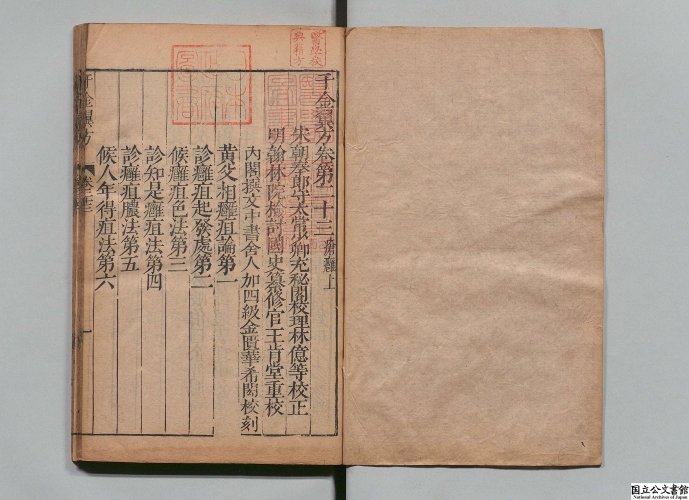 千金翼方卷第二十三 瘡癰上
宋朝奉郎守太常少卿充祕閣校理林億等校正
明翰林院檢討國史纂修官王肯堂重校
內閣撰文中書舍人加四級金匱華希閎校刻
黃父相癰疽論第一
診癰疽起發處第二
候癰疽色法第三
診知是癰疽法第四
診癰疽膿法第五
候人年得疽法第六
千金翼方
卷二十三
一
國立公文書館
National Archives of Japan